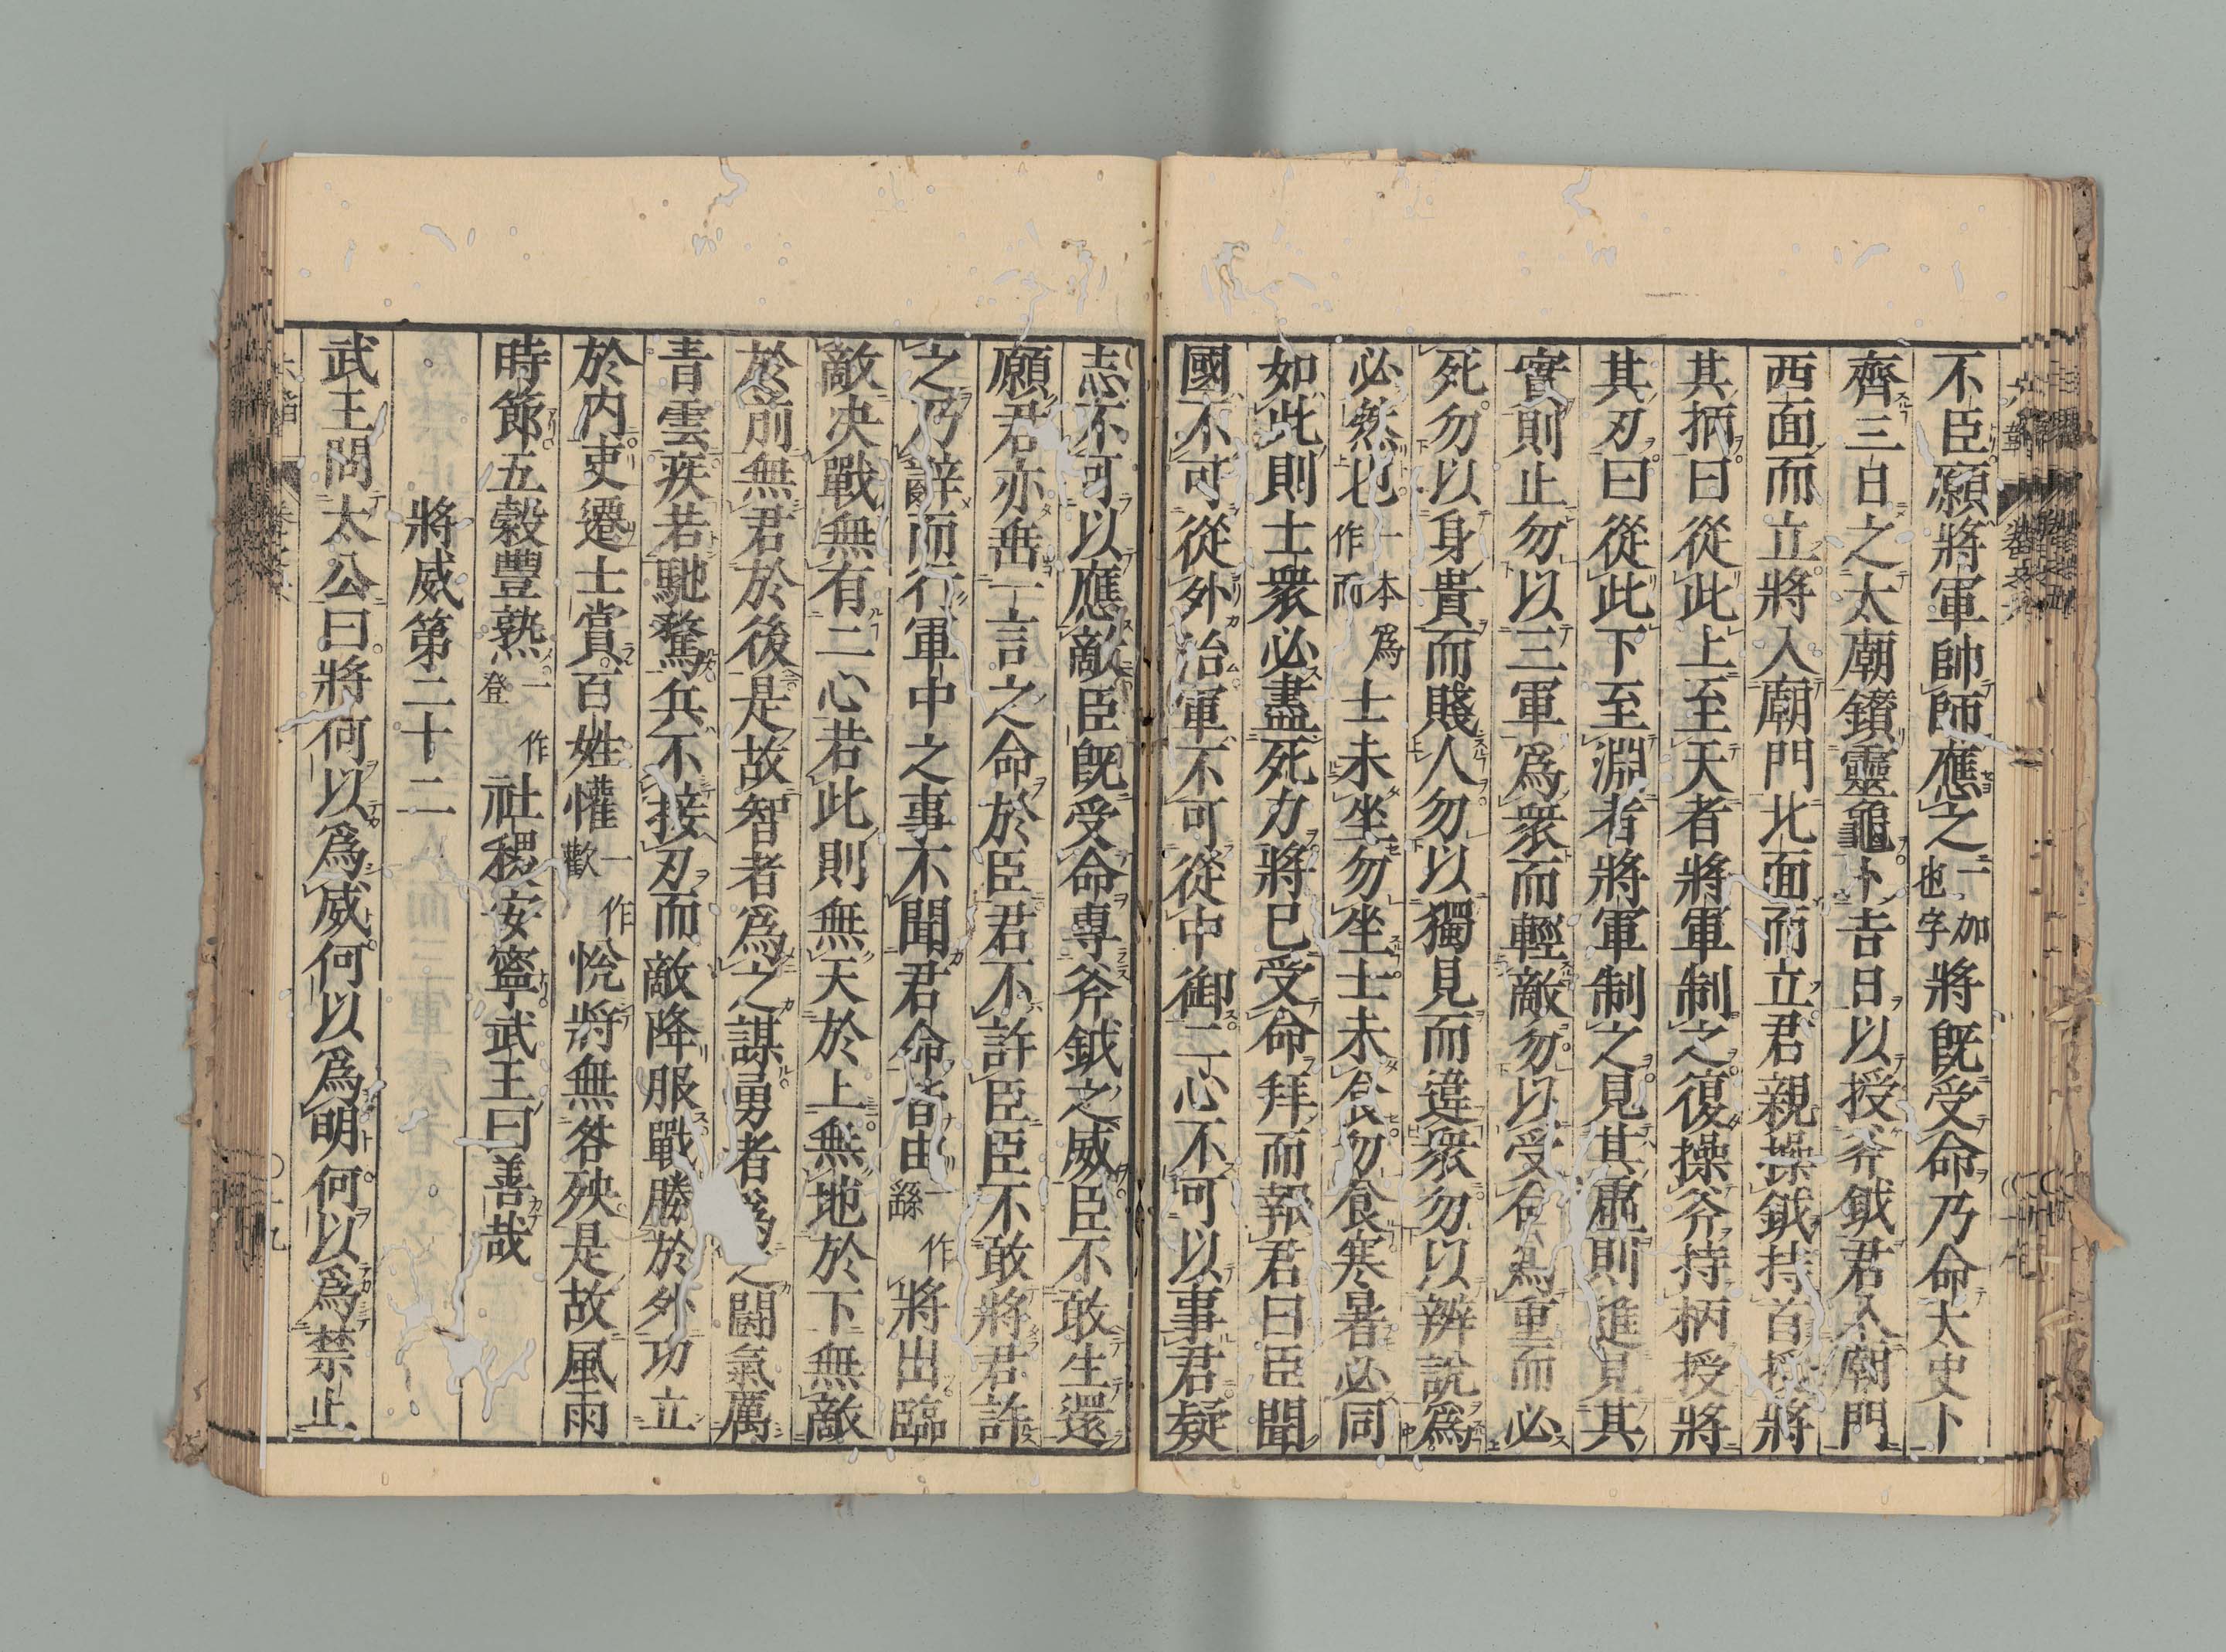 不臣願將軍帥師應之一加也字將既受命乃命太史卜
齊三日之太廟鑚靈龜卜吉日以授斧鉞君入廟門
西面而立將入廟門北面而立君親操鉞持首授將
其柄曰從此上至天者將軍制之復操斧持柄授將
其刃曰從此下至淵者將軍制之見其虛則進見其
實則止勿以三軍爲衆而輕敵勿以受命爲重而必
死勿以身貴而賤人勿以獨見而違衆勿以辨說爲
必然也一本作而爲士未坐勿坐士未食勿食寒暑必同
如此則士衆必盡死力將已受命拜而報君曰臣聞
國不可從外治軍不可從中御二心不可以事君疑
志不可以應敵臣既受命專斧鉞之威臣不敢生還
願君亦垂一言之命於臣君不許臣臣不敢將君許
之乃辭而行軍中之事不聞君命皆由一作繇將出臨
敵决戰無有二心若此則無天於上無地於下無敵
於前無君於後是故智者爲之謀勇者爲之鬬氣厲
青雲疾若馳騖兵不接刃而敵降服戰勝於外功立
於内吏遷士賞百姓懽一作歡悅將無咎殃是故風雨
時節五穀豐熟一作登社稷安寧武王曰善哉
將威第二十二
武王問太公曰將何以爲威何以爲明何以爲禁止